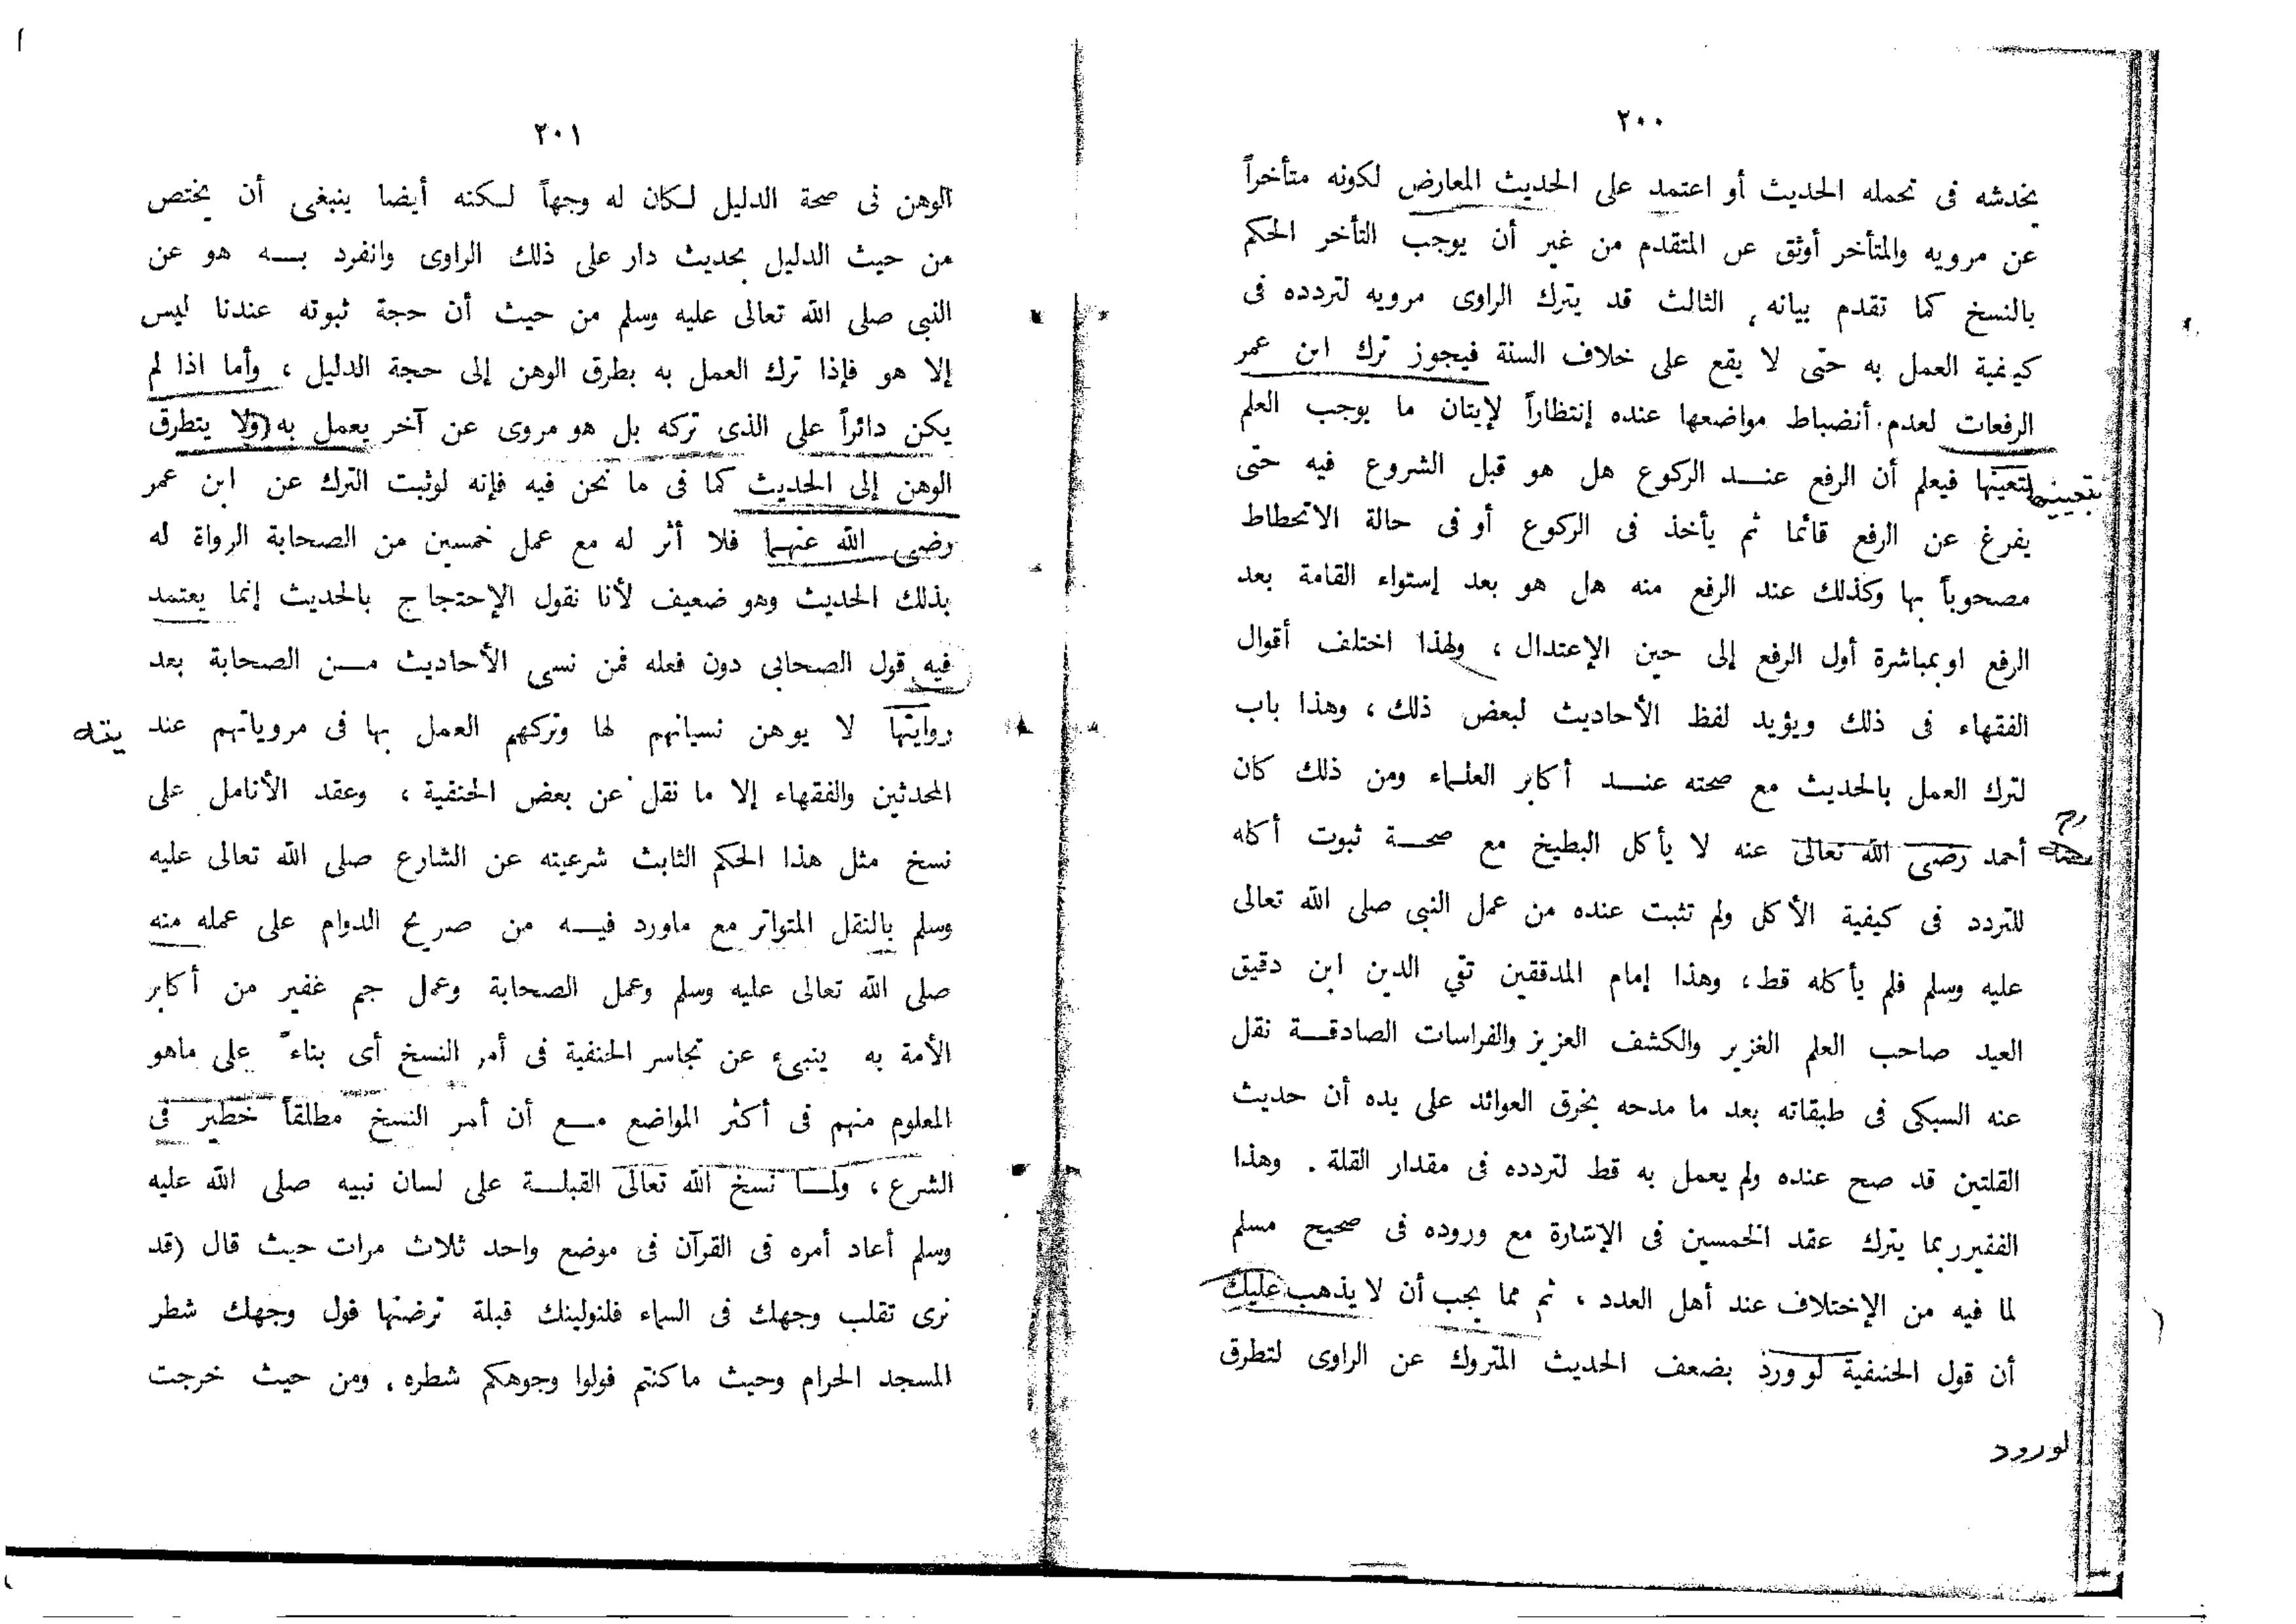 ٢٠٠
يخدشه فى تحمله الحديث أو اعتمد على الحديث المعارض لكونه متأخراً
عن مرويه والمتأخر أوثق عن المتقدم من غير أن يوجب التأخر الحكم
بالنسخ كما تقدم بيانه، الثالث قد يترك الراوى مرويه لتردده فى
كيفية العمل به حتى لا يقع على خلاف السنة فيجوز ترك ابن عمر
الرفعات لعدم أنضباط مواضعها عنده إنتظاراً لإيتان ما يوجب العلم
لتعينها فيعلم أن الرفع عند الركوع هل هو قبل الشروع فيه حتى
بتعيينها
يفرغ عن الرفع قائما ثم يأخذ فى الركوع أو فى حالة الانحطاط
مصحوباً بها وكذلك عند الرفع منه هل هو بعد إستواء القامة بعد
الرفع او بمباشرة أول الرفع إلى حين الإعتدال ، ولهذا اختلف أقوال
الفقهاء فى ذلك ويؤيد لفظ الأحاديث لبعض ذلك ، وهذا باب
لترك العمل بالحديث مع صحته عند أكابر العلماء ومن ذلك كان
أحمد رضى الله تعالى عنه لا يأكل البطيخ مع صحة ثبوت أكله
للتردد فى كيفية الأكل ولم تثبت عنده من عمل النبى صلى الله تعالى
عليه وسلم فلم يأكله قط ، وهذا إمام المدققين تقي الدين ابن دقيق
العيد صاحب العلم الغزير والكشف العزيز والفراسات الصادقة نقل
عنه السبكى فى طبقاته بعد ما مدحه بخرق العوائد على يده أن حديث
القلتين قد صح عنده ولم يعمل به قط لتردده فى مقدار القلة . وهذا
الفقير ربما يترك عقد الخمسين فى الإشارة مع وروده فى صحيح مسلم
لما فيه من الإختلاف عند أهل العدد ، ثم مما يجب أن لا يذهب عليك
أن قول الحنفية لو ورد بضعف الحديث المتروك عن الراوى لتطرق
لورود
٢٠١
الوهن فى صحة الدليل لكان له وجهاً لكنه أيضا ينبغى أن يختص
من حيث الدليل بحديث دار على ذلك الراوى وانفرد به هو عن
النبى صلى الله تعالى عليه وسلم من حيث أن حجة ثبوته عندنا ليس
إلا هو فإذا ترك العمل به بطرق الوهن إلى حجة الدليل ، وأما اذا لم
يكن دائراً على الذى تركه بل هو مروى عن آخر يعمل به (ولا يتطرق
الوهن إلى الحديث كما فى ما نحن فيه فإنه لوثبت الترك عن ابن عمر
رضى الله عنهما فلا أثر له مع عمل خمسين من الصحابة الرواة له
بذلك الحديث وهو ضعيف لأنا نقول الإحتجاج بالحديث إنما يعتمد
فيه قول الصحابى دون فعله فمن نسى الأحاديث من الصحابة بعد
روايتها لا يوهن نسيانهم لها وتركهم العمل بها فى مروياتهم عند
المحدثين والفقهاء إلا ما نقل عن بعض الحنفية ، وعقد الأنامل على
نسخ مثل هذا الحكم الثابث شرعيته عن الشارع صلى الله تعالى عليه
وسلم بالنقل المتواتر مع ماورد فيه من صريح الدوام على عمله منه
صلى الله تعالى عليه وسلم وعمل الصحابة وعمل جم غفير من أكابر
الأمة به ينبىء عن تجاسر الحنفية فى أمر النسخ أى بناء على ماهو
المعلوم منهم فى أكثر المواضع مع أن أمر النسخ مطلقاً خطير فى
الشرع ، ولما نسخ الله تعالى القبلة على لسان نبيه صلى الله عليه
وسلم أعاد أمره فى القرآن فى موضع واحد ثلاث مرات حيث قال (قد
نرى تقلب وجهك فى السماء فلنولينك قبلة ترضها فول وجهك شطر
المسجد الحرام وحيث ماكنتم فولوا وجوهكم شطره . ومن حيث خرجت